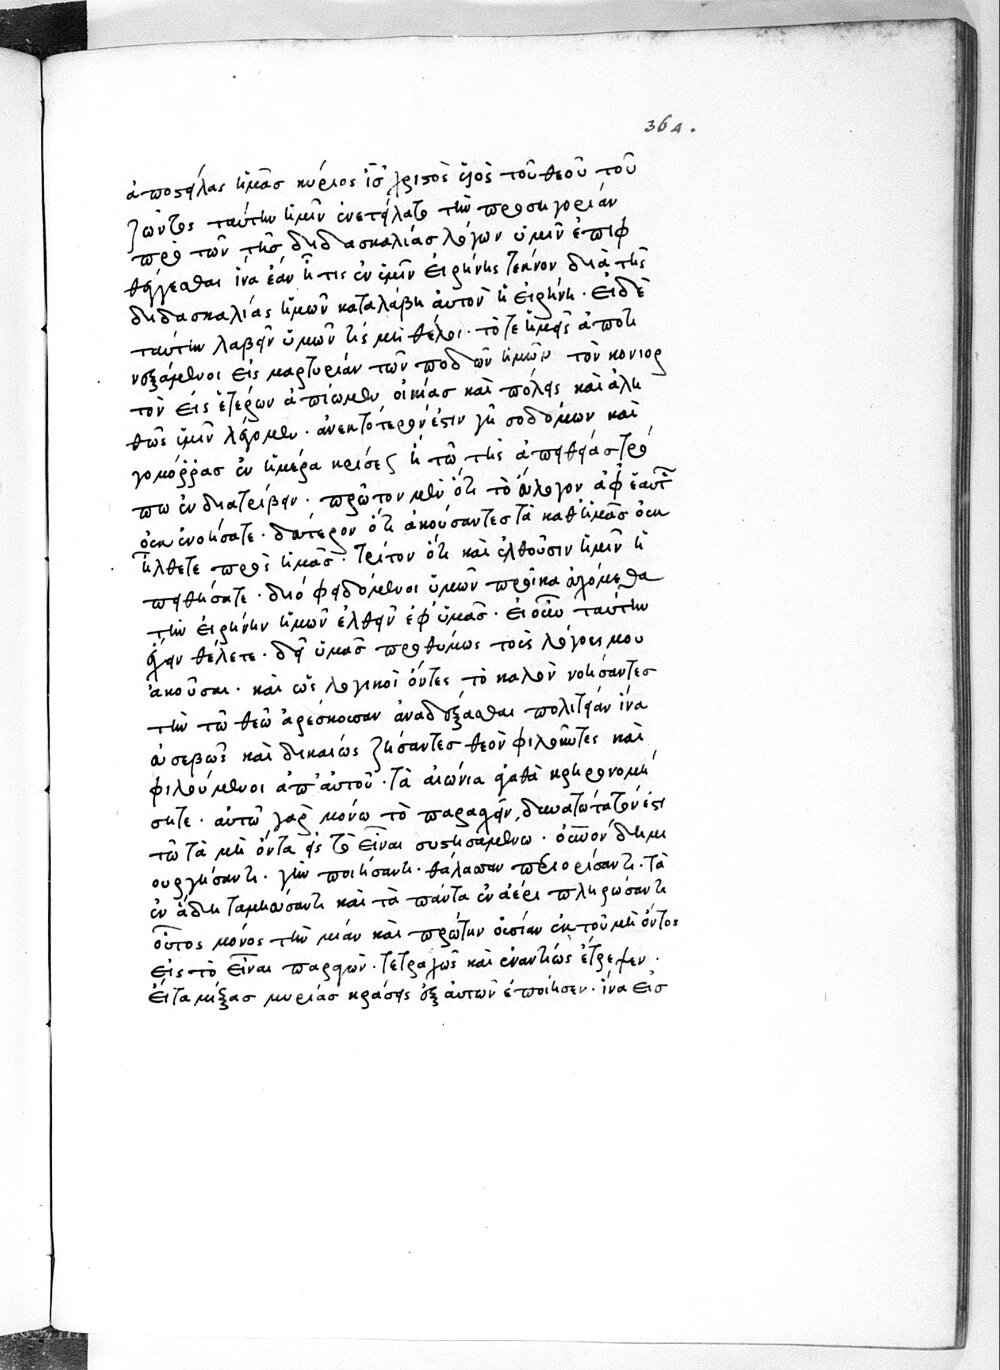 364.
ἀποστείλας ἡμᾶς κύριος ἰς̅ χριστὸς ὑιὸς τοῦ θεοῦ τοῦ
ζῶντος ταύτην ἡμῖν ἐνετείλατο τὴν προσηγορίαν
πρὸ τῶν τῆς διδασκαλίας λόγων ὑμῖν ἐπιφ
θέγγεσθαι ἵνα ἐάν ἦ τις ἐν ὑμῖν εἰρήνης τέκνον διὰ τῆς
διδασκαλίας ἡμῶν καταλάβη ἀυτὸν ἡ εἰρήνη· εἰ δὲ
ταύτην λαβεῖν ὑμῶν τίς μὴ θέλοι· τότε ἡμεῖς ἀποτι
ναξάμενοι εἰς μαρτυρίαν τῶν ποδῶν ἡμῶν τὸν κονιορ
τὸν εἰς ἑτέρων ἀπίωμεν οἰκίας καὶ πόλεις καὶ ἀλη
θῶς ὑμῖν λέγομεν· ἀνεκτότερον ἐστιν γῆ σοδόμων καὶ
γομόρρας ἐν ἡμέρα κρίσεως ἢ τῶ τῆς ἀπειθείας τρό
πω ἐνδιατρίβειν· πρῶτον μὲν ὅτι τὸ ἄλογον ἀφ' ἑαυτῶν
ὀυκ ἐνοήσατε· δεύτερον ὅτι ἀκούσαντες τὰ καθ' ἡμᾶς ὀυκ
ἤλθετε πρὸς ἡμᾶς· τρίτον ὅτι καὶ ἐλθοῦσιν ἡμῖν ἠ
πειθήσατε· διό φειδόμενοι ὑμῶν προῖκα εὐχόμεθα
τὴν εἰρήνην ἡμῶν ἐλθεῖν ἐφ' ὑμᾶς· εἰ οὖν ταύτην
ἔχειν θέλετε· δεῖ ὑμᾶς προθύμως τοὺς λόγους μου
ἀκοῦσαι· καὶ ὡς λογικοὶ ὄντες τὸ καλὸν νοήσαντες
τὴν τῶ θεῶ ἀρέσκουσαν ἀναδέξασθαι πολιτείαν ἵνα
ἐυσεβῶς καὶ δικαίως ζήσαντες θεὸν φιλοῦντες καὶ
φιλούμενοι ἀπ' ἀυτοῦ· τὰ αἰώνια ἀγαθὰ κληρονομή
σητε· αὐτῶ γὰρ μόνω τὸ παρασχεῖν, δυνατώτατόν ἐστι
τῶ τὰ μὴ ὄντα εἰς τὸ εἶναι συστησάμενω· οὐρανὸν δημι
ουργήσαντι· γῆν ποιήσαντι· θάλασσαν περιορίσαντι· τὰ
ἐν ἅδη ταμιεύσαντι καὶ τὰ πάντα ἐν ἀέρι πληρώσαντι
οὗτος μόνος τὴν μίαν καὶ πρώτην οὐσίαν ἐκ τοῦ μὴ ὄντος
εἰς τὸ εἶναι παρασχών· τετραχῶς καὶ ἐναντίως ἔτρεψεν·
εἶτα μίξας μυρίας κράσεις ἐξ ἀυτῶν ἐποίησεν· ἵνα εἰς